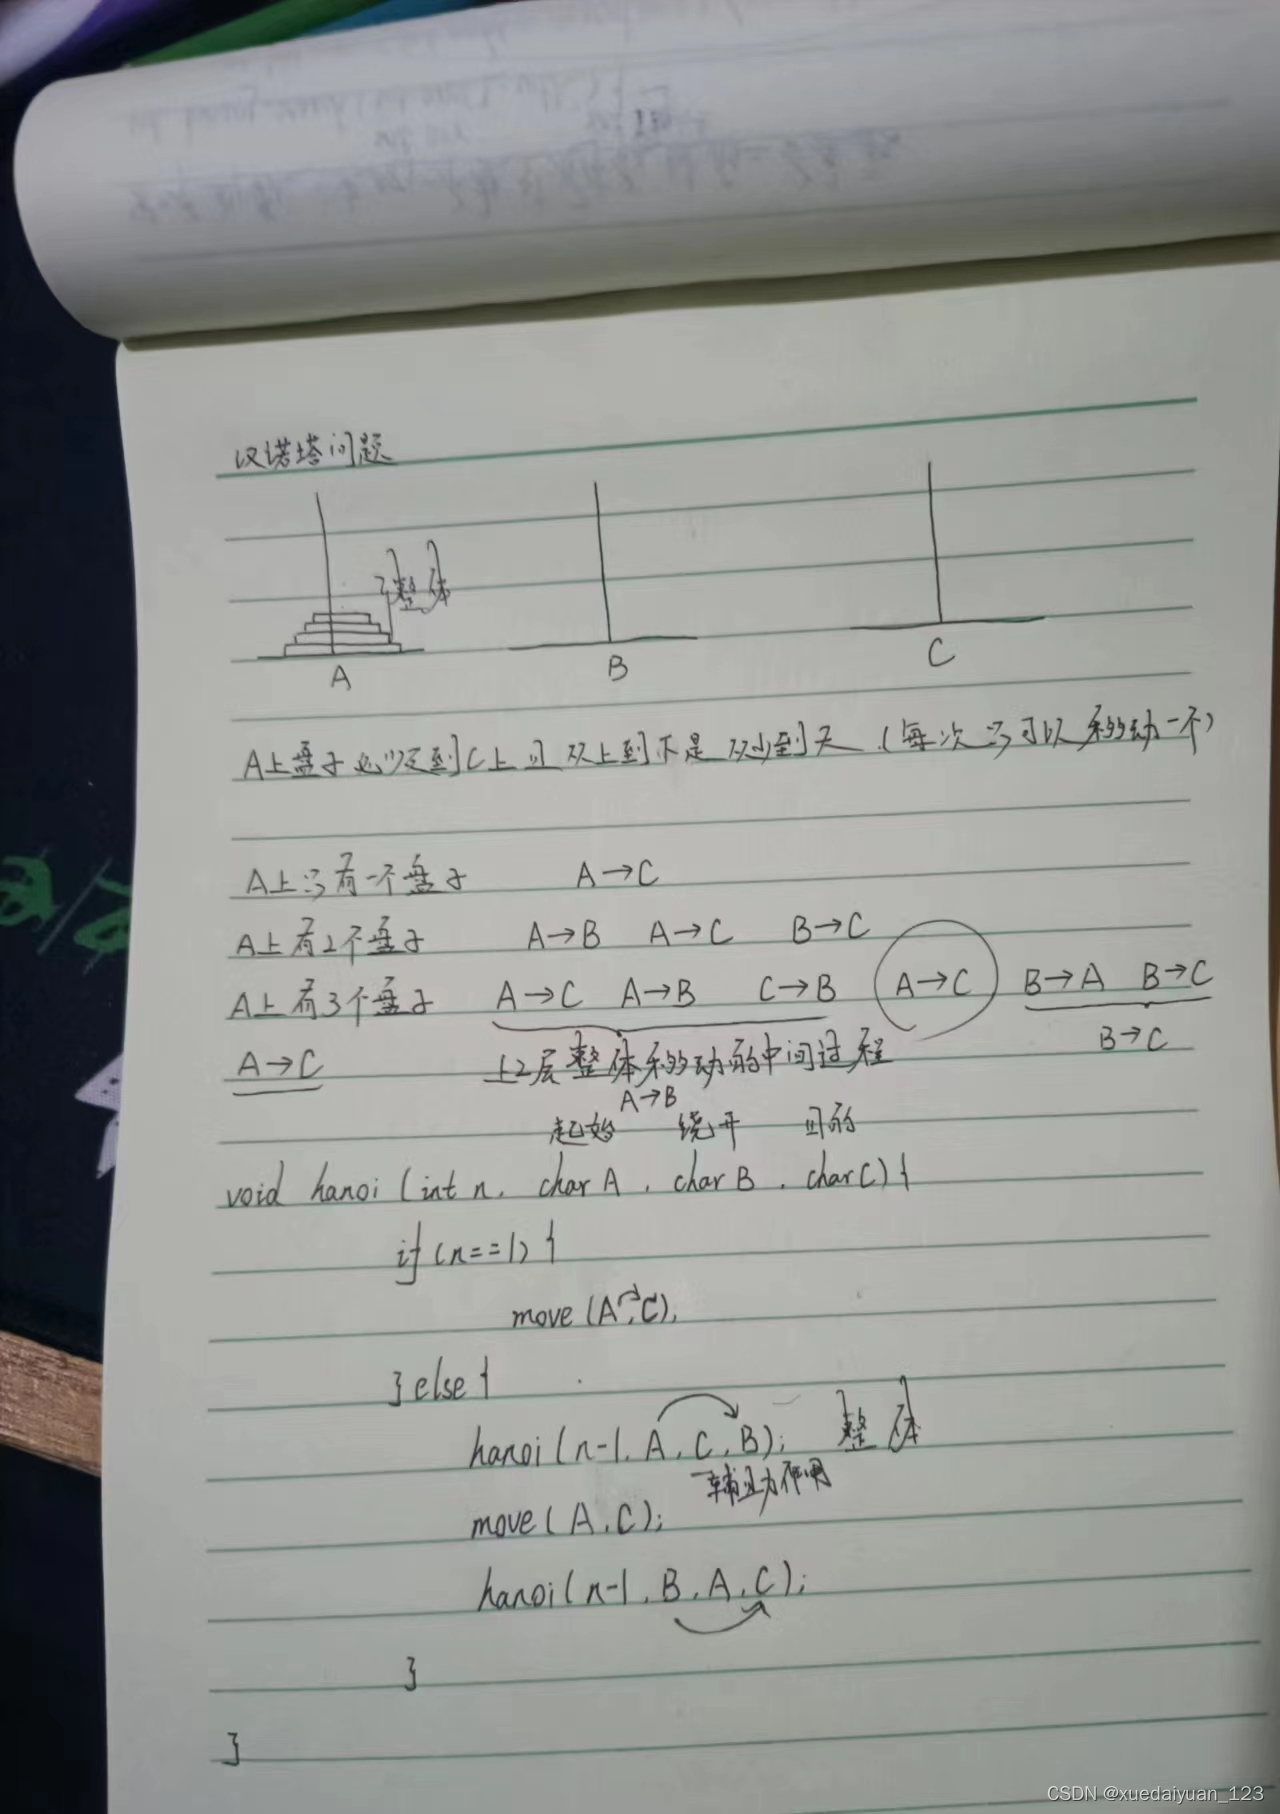 汉诺塔问题
整体
A B C
A上盘子必须定到C上且从上到下是从小到大.(每次只可以移动一个)
A上只有一个盘子 A→C
A上有2个盘子 A→B A→C B→C
A上有3个盘子 A→C A→B C→B A→C B→A B→C
A→C 上2层整体移动的中间过程 B→C
A→B
起始 绕开 目的
void hanoi (int n, char A, char B, char C){
if (n==1) {
move (A,C);
}else{
hanoi (n-1, A, C, B); 整体
辅助作用
move (A, C);
hanoi (n-1, B, A, C);
}
}
CSDN @xuedaiyuan_123